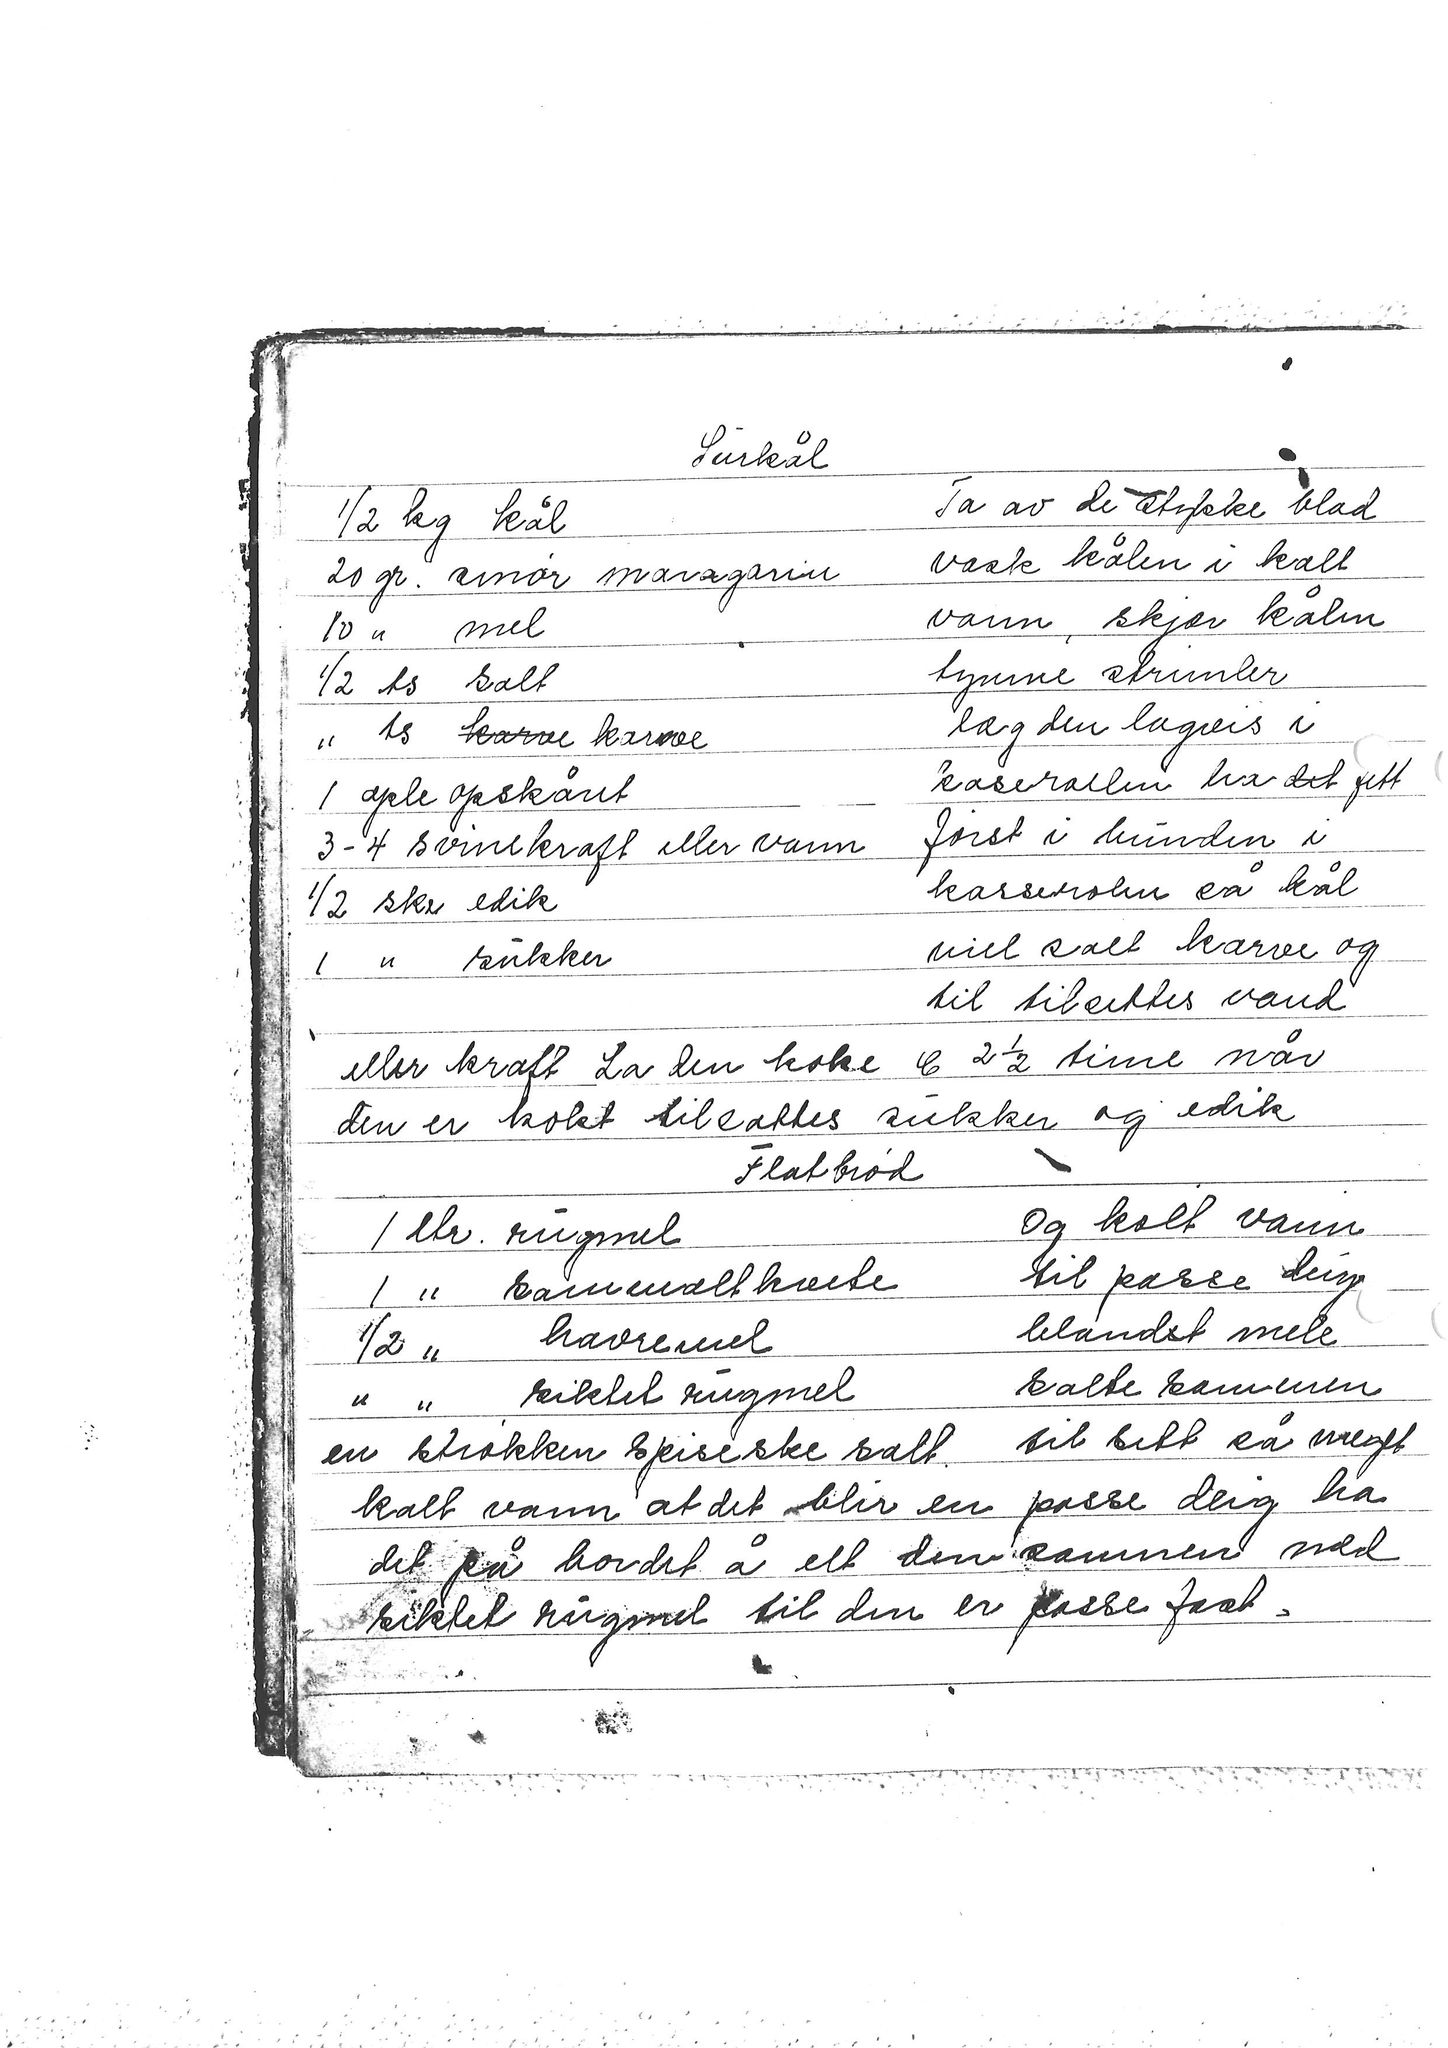 Surkål
1/2 kg kål
20 gr. smør maragarin
10 " mel
1/2 ts salt
" ts karve karve
1 eple opskåret
3-4 svinekraft eller vann
1/2 ske edik
1 " sukker
Ta av de stykke blad
vask kålen i kalt
vann, skjær kålen
tynne strimler
læg den lagvis i
kaserollen ha det fett
først i bunden i
kasserolen så kål
mel salt karve og
til tilsettes vand
eller kraft La den koke 2 1/2 time når
den er kokt tilsattes sukker og edik
Flatbrød
1 ltr. rugmel
1 " sammalt hvete
1/2 " havremel
" " siktet rugmel
en strøkken spiseske salt.
og kalt vann
til passe deig
blandet mele
salte sammen
til sett så meget
kalt vann at det blir en passe deig ha
det på bordet å elt den sammen med
siktet rugmel til den er passe fast.